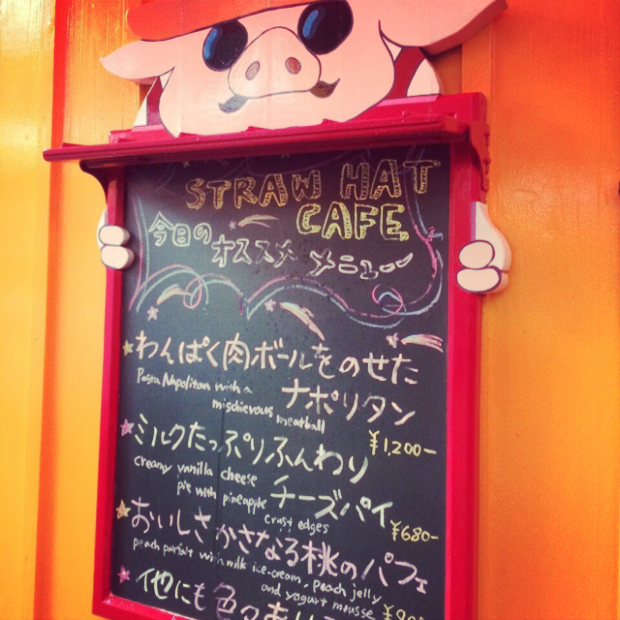 STRAW HAT
CAFE
今日の
オススメ メニュー
わんぱく肉ボールをのせた
Pasta Napolitan with a
mischievous meatball
ナポリタン
¥1,200-
ミルクたっぷりふんわり
creamy vanilla cheese
pie with pineapple
crust edges
チーズパイ
¥680-
おいしさかさなる桃のパフェ
peach parfait with milk ice-cream, peach jelly
and yogurt mousse
他にも色々あり